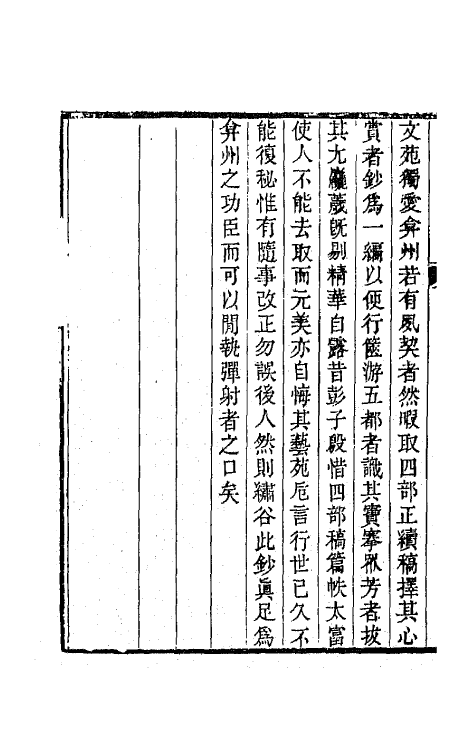 文苑獨愛弇州若有夙契者然暇取四部正續稿擇其心
賞者鈔爲一編以便行篋游五都者識其寶搴眾芳者拔
其尤蕪薉旣剔精華自露昔彭子殷惜四部稿篇帙太富
使人不能去取而元美亦自悔其藝苑巵言行世已久不
能復秘惟有隨事改正勿誤後人然則繡谷此鈔眞足爲
弇州之功臣而可以閒執彈射者之口矣